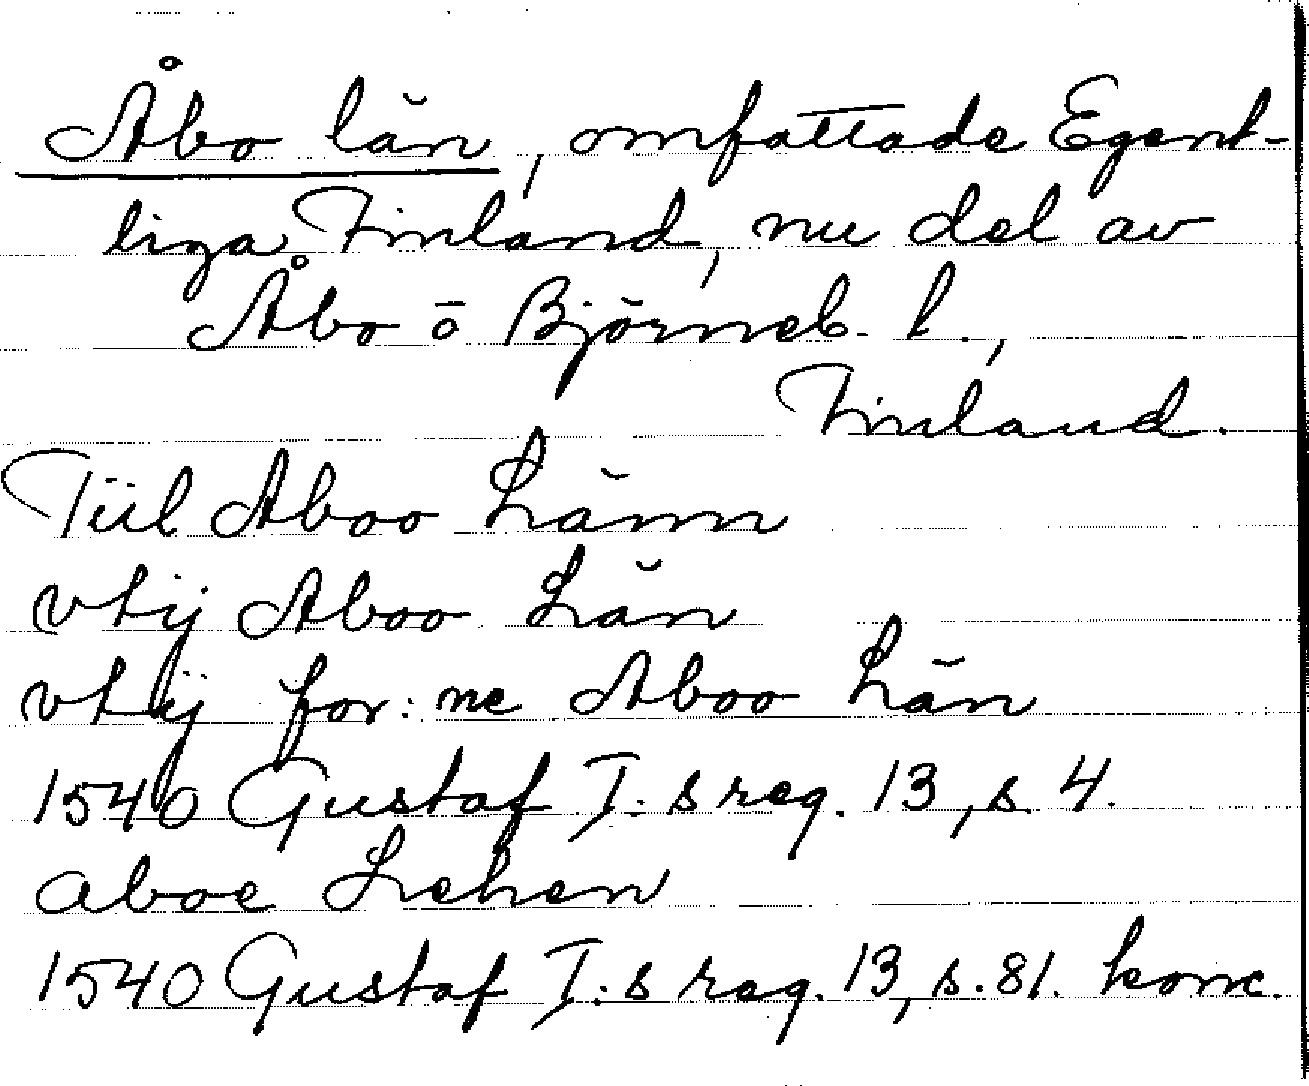 Åbo län, omfattade Egent-
liga Finland, nu del av
Åbo o Björneb. l.,
Finland.
Tiil Aboo Länn
vtij Aboo Län
vtij for:ne Aboo Län
1540 Gustaf I:s reg. 13, s. 4.
aboe Lehen
1540 Gustaf I:s reg. 13, s. 81. konc.